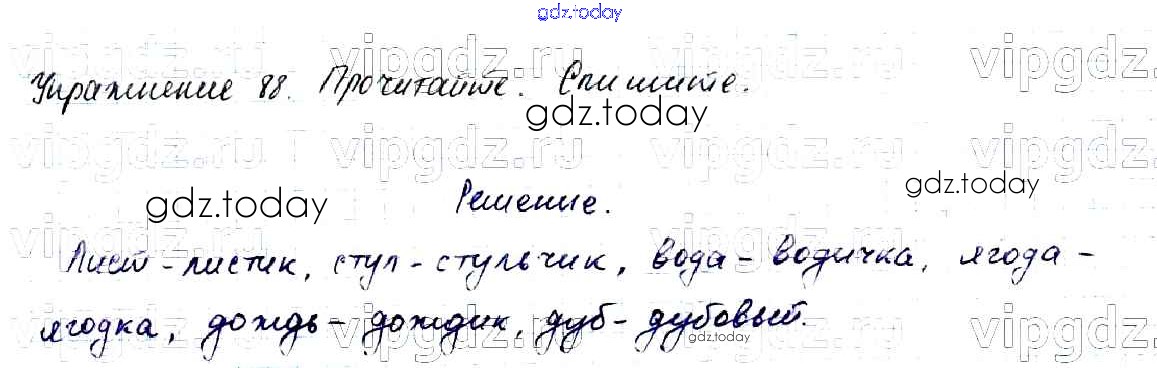 gdz.today
vipgdz.ru vipgdz.ru vipgdz.ru vipgdz.
Упражнение 88. Прочитайте. Спишите.
gdz.today
vipgdz.ru vipgdz.ru vipgdz.ru vipgdz.
gdz.today
gdz.today Решение.
vipgdz.ru vipgdz.ru vipgdz.ru vipgdz.
Лист - листик, стул - стульчик, вода - водичка, ягода -
ягодка, дождь - дождик, дуб - дубовый.
gdz.today
vipgdz.ru vipgdz.ru vipgdz.ru vipgdz.